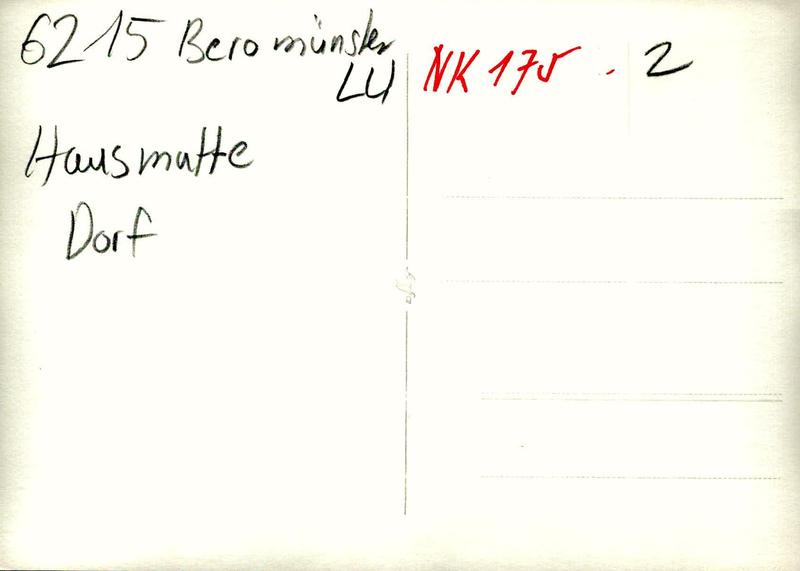 6215 Beromünster
LU
NK 175 . 2
Hausmatte
Dorf